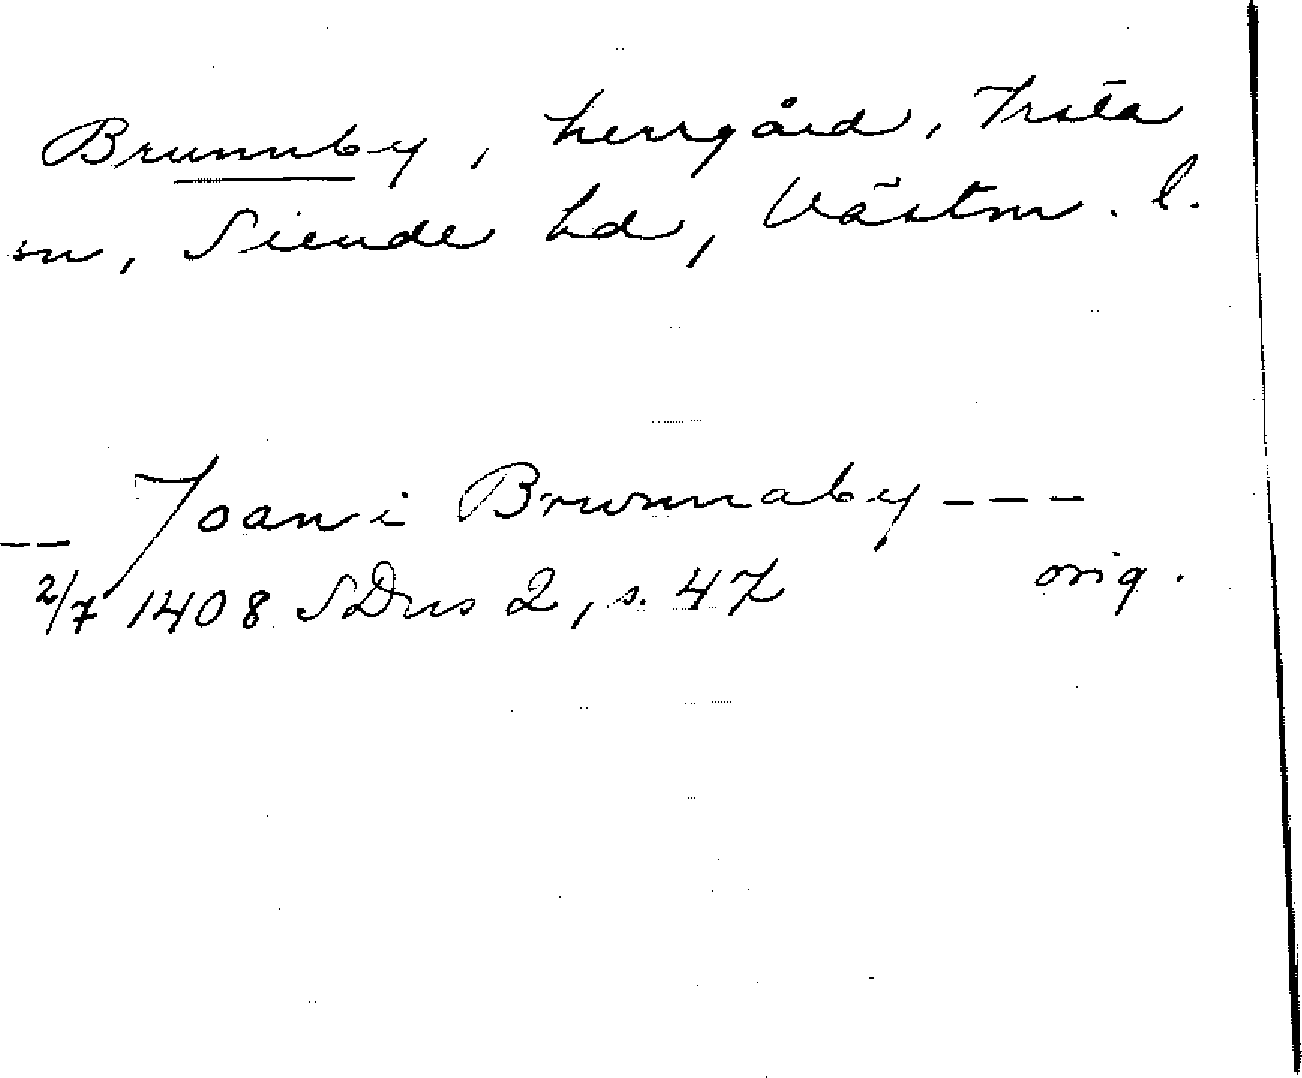 Brunnby, herrgård, Irsta
sn, Siende hd, Västm. l.
-- Joan i Brwnnaby ---
2/7 1408 SDns 2, s. 47 orig.